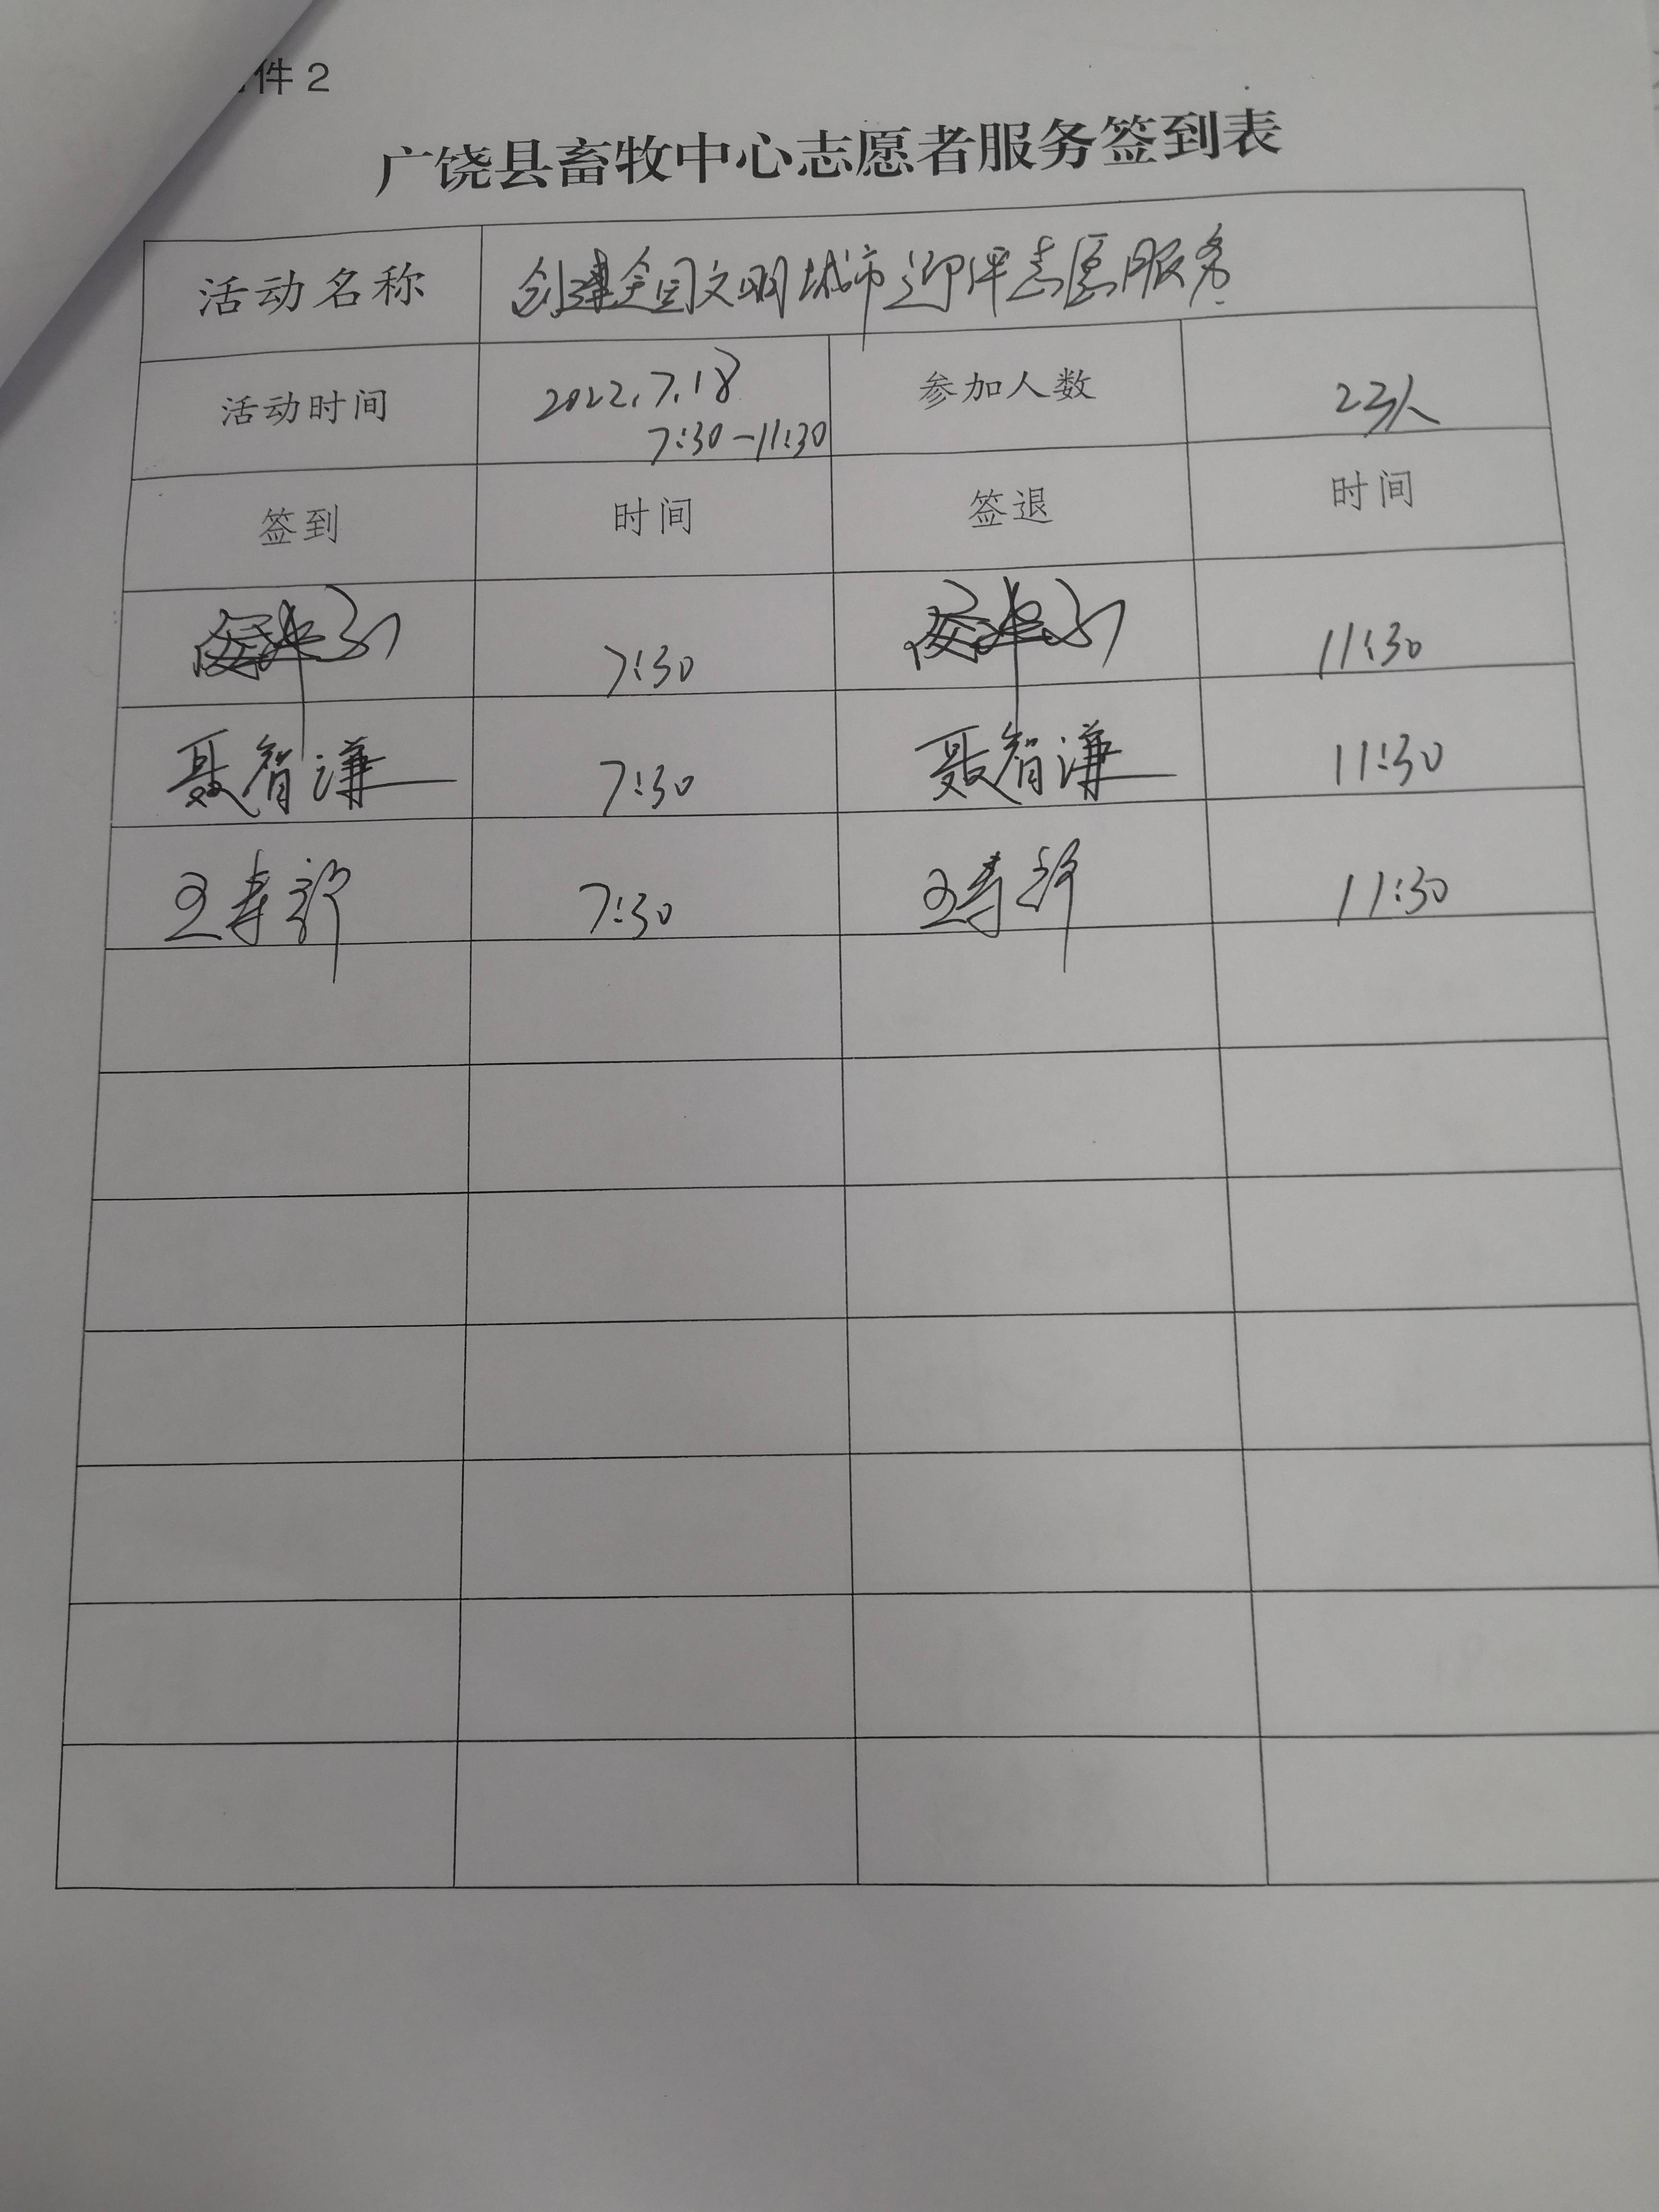 件 2
广饶县畜牧中心志愿者服务签到表
活动名称 创建全国文明城市迎评志愿服务
活动时间 2022.7.18 参加人数 23人
7:30-11:30
签到 时间 签退 时间
7:30 11:30
聂智谦 7:30 聂智谦 11:30
王寿 7:30 王寿 11:30